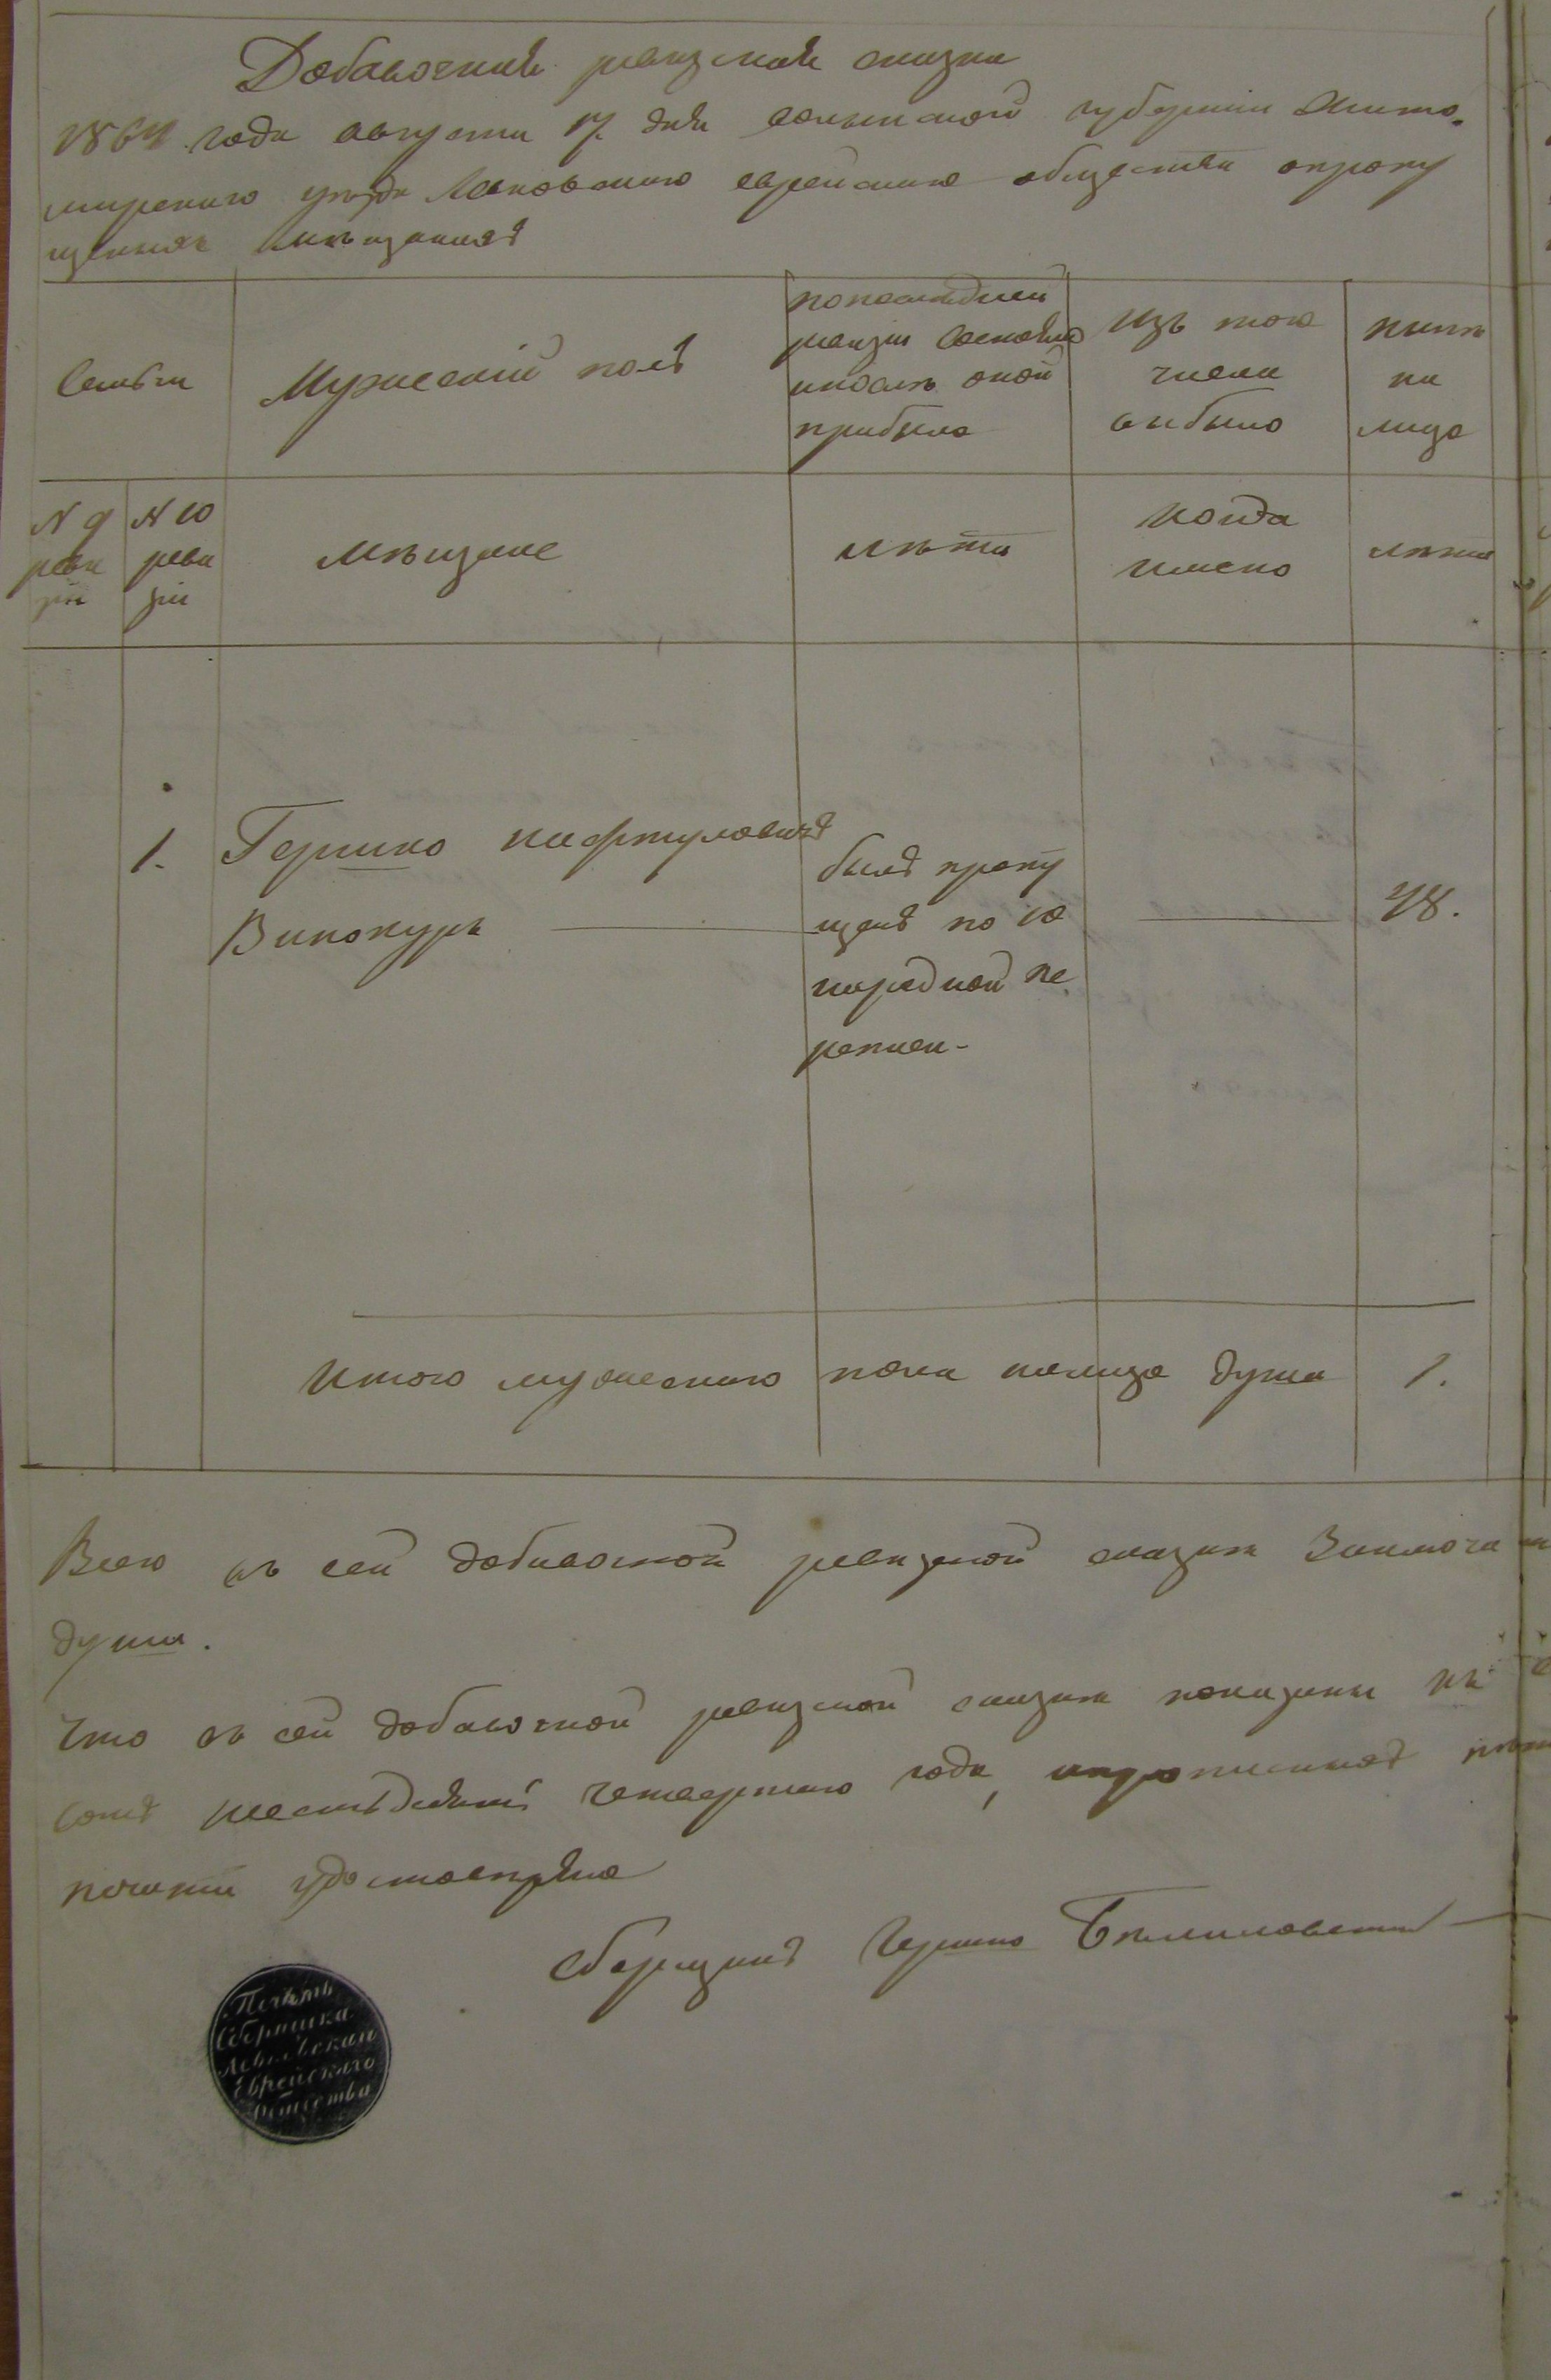 Добавочная ревизская сказка
1864 года августа 17 дня Волынской губернии Жито-
мирскаго уезда еврейскаго общества о пропу
щенныхъ мѣщанахъ
Семьи
Мужескій полъ
по последней
ревизіи состояло
и после оной
прибыло
Изъ того
числа
выбыло
ныне
на
лицо
N 9
реви
зіи
N 10
реви
зіи
Мѣщане
лѣта
когда
имено
лѣта
1.
Гершко Нафтуловичъ
Винокуръ
былъ пропу
щенъ по 10
народной пе
реписи-
48.
Итого мужескаго пола налицо душа 1.
Всего въ сей добавочной ревизской сказке Заключа
душа.
Что въ сей добавочной ревизской сказке показаны
сотъ шестьдесятъ четвертаго года,
удостоверяю
Сборщикъ Гершко
Печать
Сборщика
Еврейскаго
Общества